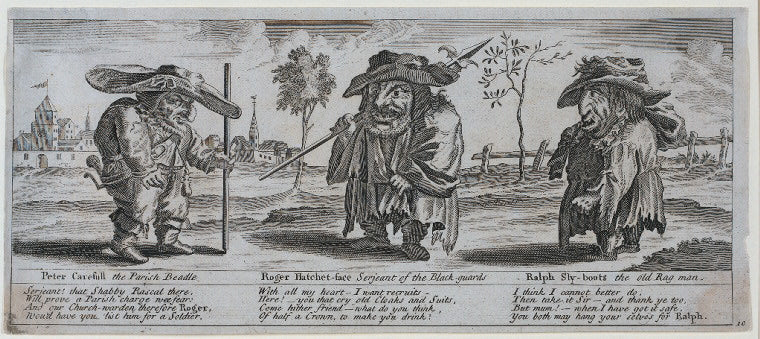 Peter Carefull the Parish Beadle.
Serjeant! that Shabby Rascal there,
Will prove a Parish charge wee fear:
And our Church-warden therefore Roger,
Wou'd have you list him for a Soldier.
Roger Hatchet-face Serjeant of the Black-guards
With all my heart — I want recruits —
Here! — you that cry old Cloaks and Suits,
Come hither friend — what do you think,
Of half a Crown, to make you drink!
Ralph Sly-boots the old Rag man.
I think I cannot better do:
Then take it Sir — and thank ye too,
But mum! — when I have got it safe,
You both may hang your selves for Ralph.
10